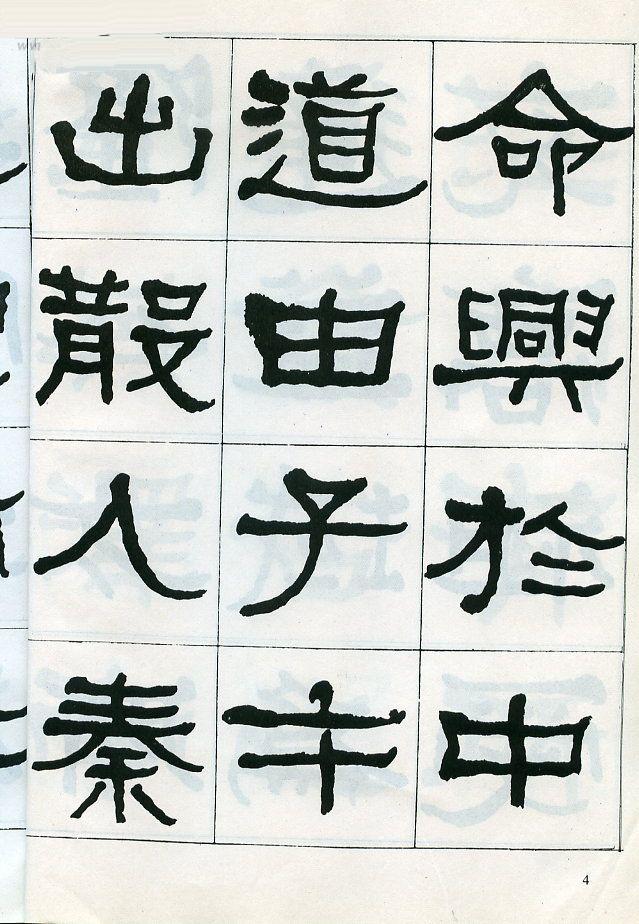 命興於中
道由子午
出散入秦
4